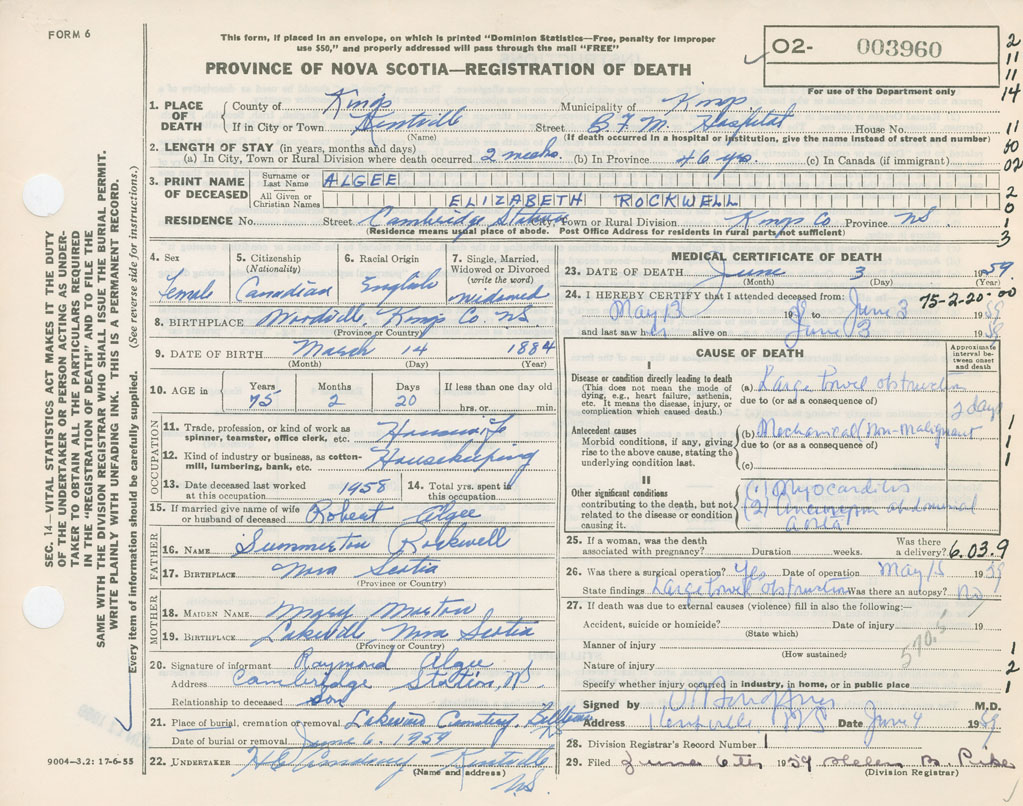 FORM 6
This form, if placed in an envelope, on which is printed "Dominion Statistics—Free, penalty for improper
use $50," and properly addressed will pass through the mail "FREE"
O2- 003960
For use of the Department only
PROVINCE OF NOVA SCOTIA—REGISTRATION OF DEATH
2
11
11
14
11
30
02
2
0
1
3
SEC. 14—VITAL STATISTICS ACT MAKES IT THE DUTY
OF THE UNDERTAKER OR PERSON ACTING AS UNDER-
TAKER TO OBTAIN ALL THE PARTICULARS REQUIRED
IN THE "REGISTRATION OF DEATH" AND TO FILE THE
SAME WITH THE DIVISION REGISTRAR WHO SHALL ISSUE THE BURIAL PERMIT.
WRITE PLAINLY WITH UNFADING INK. THIS IS A PERMANENT RECORD.
Every item of information should be carefully supplied. (See reverse side for instructions.)
1. PLACE OF DEATH { County of Kings Municipality of Kings
If in City or Town Kentville Street B.F.M. Hospital House No.
(Name) (If death occurred in a hospital or institution, give the name instead of street and number)
2. LENGTH OF STAY (in years, months and days)
(a) In City, Town or Rural Division where death occurred 2 weeks. (b) In Province 46 yrs. (c) In Canada (if immigrant)
3. PRINT NAME OF DECEASED { Surname or Last Name ALGEE
All Given or Christian Names ELIZABETH ROCKWELL
RESIDENCE No. Street Cambridge Station City, Town or Rural Division Kings Co Province NS
(Residence means usual place of abode. Post Office Address for residents in rural parts not sufficient)
4. Sex Female
5. Citizenship (Nationality) Canadian
6. Racial Origin English
7. Single, Married, Widowed or Divorced (write the word) Widowed
8. BIRTHPLACE Woodville, Kings Co. N.S.
(Province or Country)
9. DATE OF BIRTH March 14 1884
(Month) (Day) (Year)
10. AGE in Years 75 Months 2 Days 20 If less than one day old hrs. or min.
OCCUPATION
11. Trade, profession, or kind of work as spinner, teamster, office clerk, etc. Housewife
12. Kind of industry or business, as cotton-mill, lumbering, bank, etc. Housekeeping
13. Date deceased last worked at this occupation 1958 14. Total yrs. spent in this occupation
15. If married give name of wife or husband of deceased Robert Algee
FATHER
16. NAME Summerton Rockwell
17. BIRTHPLACE Nova Scotia
(Province or Country)
MOTHER
18. MAIDEN NAME Mary Morton
19. BIRTHPLACE Lakeville Nova Scotia
(Province or Country)
20. Signature of informant Raymond Algee
Address Cambridge Station, NS.
Relationship to deceased son
21. Place of burial, cremation or removal Lakewood Cemetery
Date of burial or removal June 6. 1959
22. UNDERTAKER Kentville
(Name and address) N.S.
9004—3.2: 17-6-55
MEDICAL CERTIFICATE OF DEATH
23. DATE OF DEATH June 3 1959.
(Month) (Day) (Year)
24. I HEREBY CERTIFY that I attended deceased from: 75-2-20-00
May 13 1959 to June 3 1959
and last saw her alive on June 3 1959
CAUSE OF DEATH
Approximate interval between onset and death
I
Disease or condition directly leading to death
(This does not mean the mode of
dying, e.g., heart failure, asthenia,
etc. It means the disease, injury, or
complication which caused death.)
(a) Large bowel obstruction
due to (or as a consequence of)
2 days
Antecedent causes
Morbid conditions, if any, giving
rise to the above cause, stating the
underlying condition last.
(b) Mechanical (Non-Malignant
due to (or as a consequence of)
(c)
1
1
1
II
Other significant conditions
contributing to the death, but not
related to the disease or condition
causing it.
(1) Myocarditis
(2) Aneurysm abdominal
aorta
25. If a woman, was the death associated with pregnancy? Duration weeks. Was there a delivery? 6.03.9
26. Was there a surgical operation? Yes Date of operation May 15 1959
State findings Large bowel obstruction Was there an autopsy? No
27. If death was due to external causes (violence) fill in also the following:—
Accident, suicide or homicide? Date of injury 19
(State which)
570.5
Manner of injury 1
(How sustained)
Nature of injury 2
Specify whether injury occurred in industry, in home, or in public place 1
Signed by M.D.
Address Kentville NS Date June 4 1959
28. Division Registrar's Record Number 1
29. Filed June 6th 1959 Helen B.
(Division Registrar)